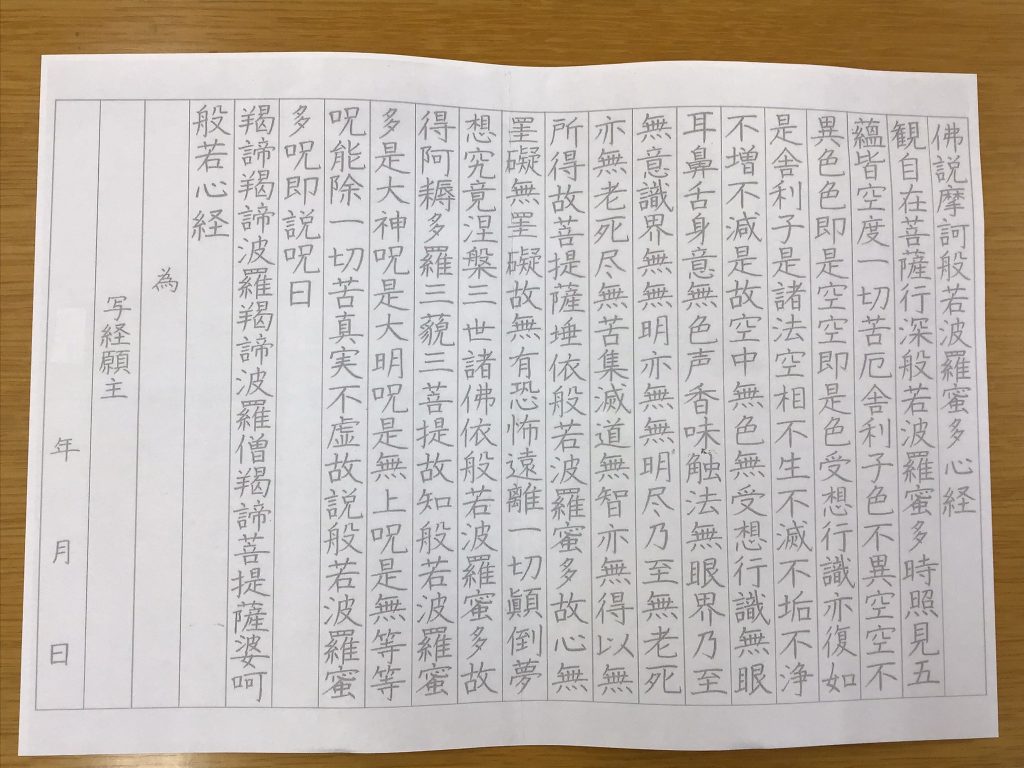 佛説摩訶般若波羅蜜多心経
観自在菩薩行深般若波羅蜜多時照見五
蘊皆空度一切苦厄舎利子色不異空空不
異色色即是空空即是色受想行識亦復如
是舎利子是諸法空相不生不滅不垢不浄
不増不減是故空中無色無受想行識無眼
耳鼻舌身意無色声香味触法無眼界乃至
無意識界無無明亦無無明尽乃至無老死
亦無老死尽無苦集滅道無智亦無得以無
所得故菩提薩埵依般若波羅蜜多故心無
罣礙無罣礙故無有恐怖遠離一切顛倒夢
想究竟涅槃三世諸佛依般若波羅蜜多故
得阿耨多羅三藐三菩提故知般若波羅蜜
多是大神呪是大明呪是無上呪是無等等
呪能除一切苦真実不虚故説般若波羅蜜
多呪即説呪曰
羯諦羯諦波羅羯諦波羅僧羯諦菩提薩婆呵
般若心経
為
写経願主
年 月 日